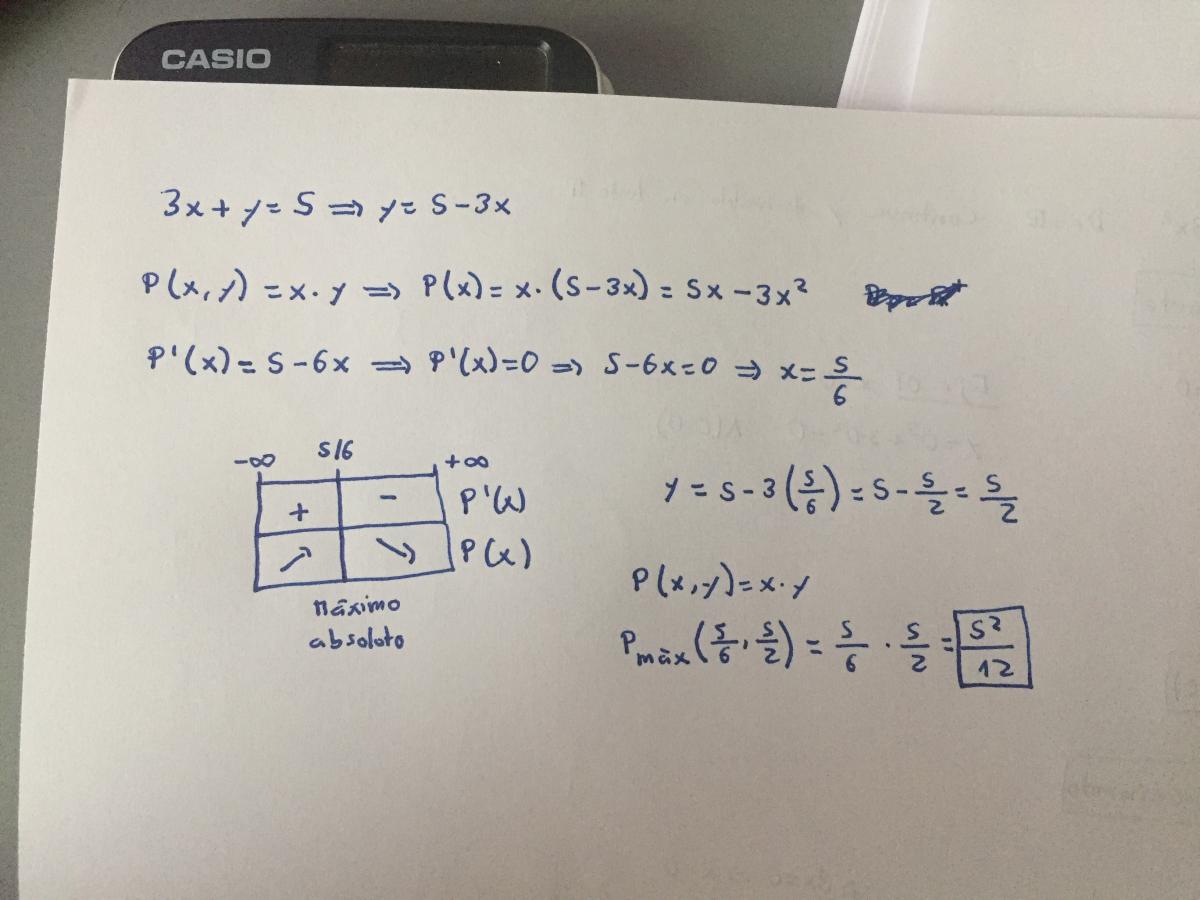 CASIO
3x + y = S ⇒ y = S - 3x
P(x, y) = x · y ⇒ P(x) = x · (S - 3x) = Sx - 3x²
P'(x) = S - 6x ⇒ P'(x) = 0 ⇒ S - 6x = 0 ⇒ x = S/6
-∞ S/6 +∞
+ - P'(x)
↗ ↘ P(x)
Máximo
absoloto
y = S - 3(S/6) = S - S/2 = S/2
P(x, y) = x · y
Pmáx(S/6, S/2) = S/6 · S/2 = S²/12